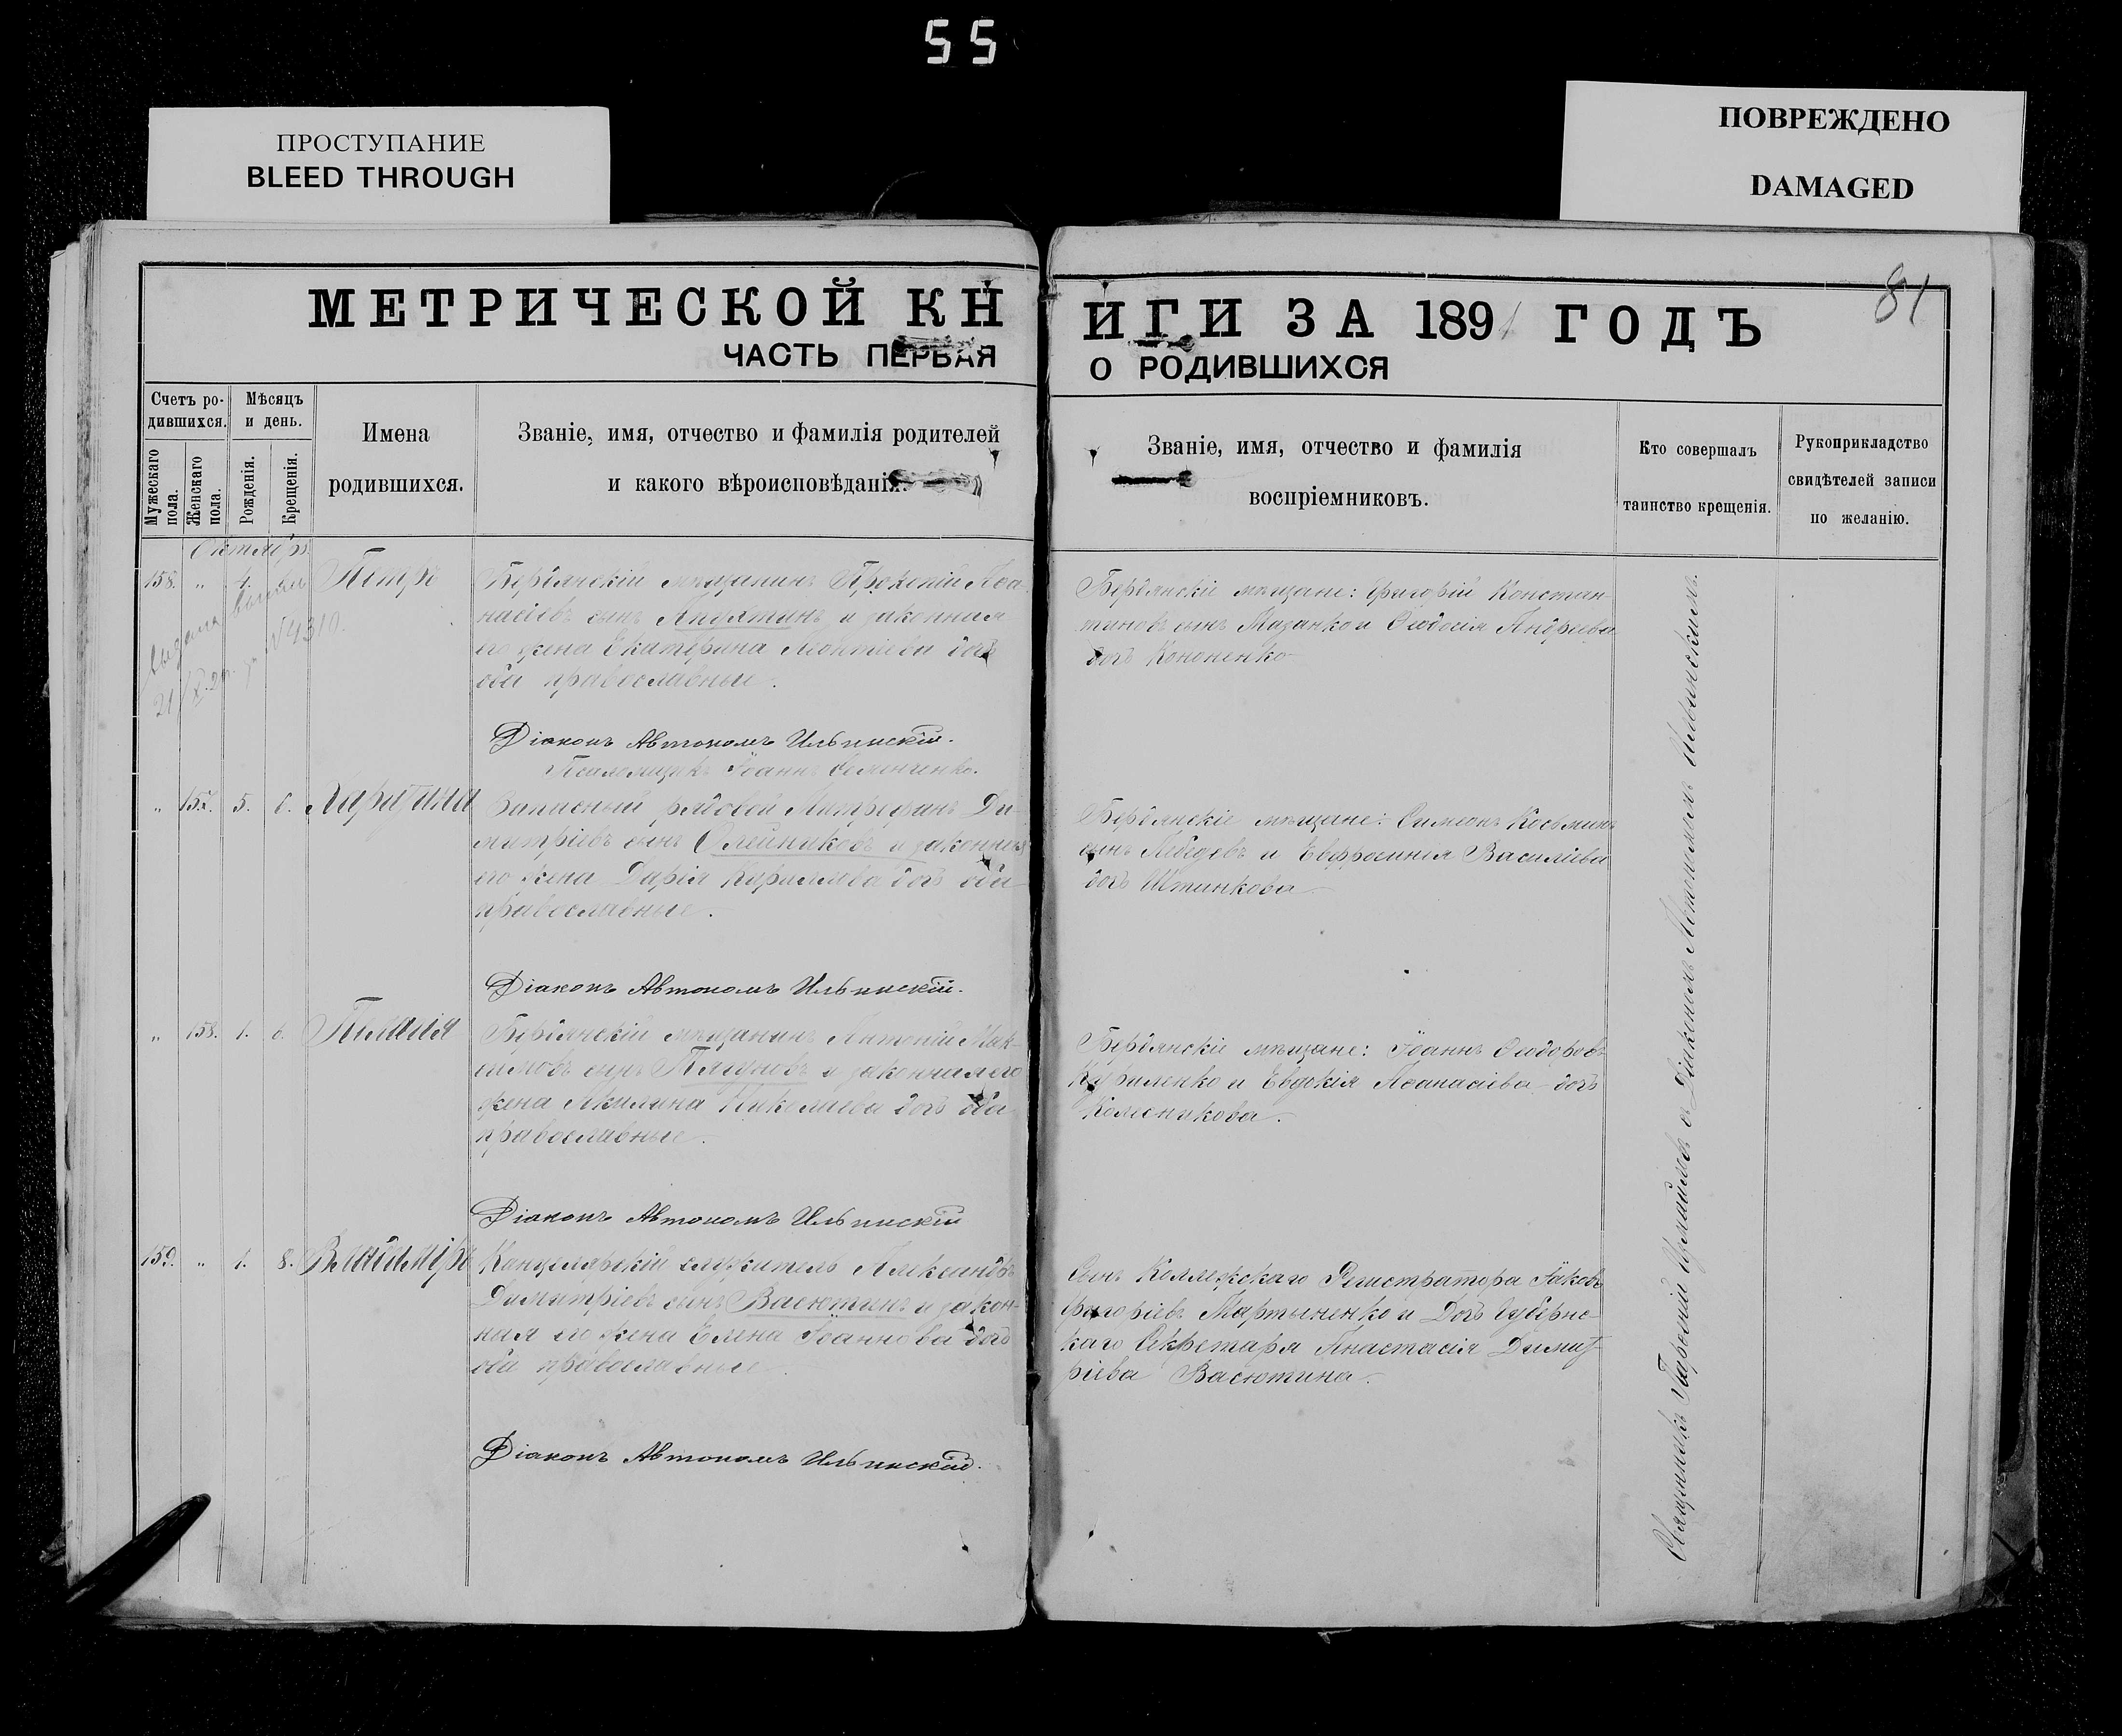 55
ПРОСТУПАНИЕ
BLEED THROUGH
ПОВРЕЖДЕНО
DAMAGED
81
МЕТРИЧЕСКОЙ КНИГИ ЗА 1891 ГОДЪ
ЧАСТЬ ПЕРВАЯ О РОДИВШИХСЯ
Счетъ ро-
дившихся.
Мужескаго пола.
Женскаго пола.
Мѣсяцъ
и день.
Рожденія.
Крещенія.
Имена
родившихся.
Званіе, имя, отчество и фамилія родителей
и какого вѣроисповѣданія.
Званіе, имя, отчество и фамилія
воспріемниковъ.
Кто совершалъ
таинство крещенія.
Рукоприкладство
свидѣтелей записи
по желанію.
Октябрь
158. " 4. Петръ
Бердянскій мѣщанинъ Прокопій Аѳа-
насіевъ сынъ и законная
его жена Екатерина дочь
оба православные.
Діаконъ Автономъ Ильинскій.
Псаломщикъ Іоаннъ
Бердянскіе мѣщане: Григорій Констан-
тиновъ сынъ Казанко и Ѳеодосія Андреева
дочь Кононенко
выдана выпись
21/X 2 г. за №4310.
" 157. 5. 6. Харитина
Запасный рядовой Митрофанъ Ди-
митріевъ сынъ Олейниковъ и законная
его жена Дарія Кириллова дочь оба
православные.
Діаконъ Автономъ Ильинскій.
Бердянскіе мѣщане: Симеонъ Косьминъ
сынъ Лебедевъ и Евфросинія Василіева
дочь
" 158. 1. 6. Пелагія
Бердянскій мѣщанинъ Антоній Мак-
симовъ сынъ и законная его
жена Акилина Николаева дочь оба
православные.
Діаконъ Автономъ Ильинскій
Бердянскіе мѣщане: Іоаннъ Ѳеодоровъ
Куриленко и Евдокія Аѳанасіева дочь
Колесникова.
159. " 1. 8. Владиміръ
Канцелярскій служитель Александръ
Димитріевъ сынъ Васютинъ и закон-
ная его жена Елена Іоаннова дочь
оба православные.
Діаконъ Автономъ Ильинскій.
Сынъ Коллежскаго Регистратора Іаковъ
Григоріевъ Мартыненко и Дочь Губернс-
каго Секретаря Анастасія Димит-
ріева Васютина.
Священникъ Парѳеній съ Діакономъ Автономомъ Ильинскимъ.